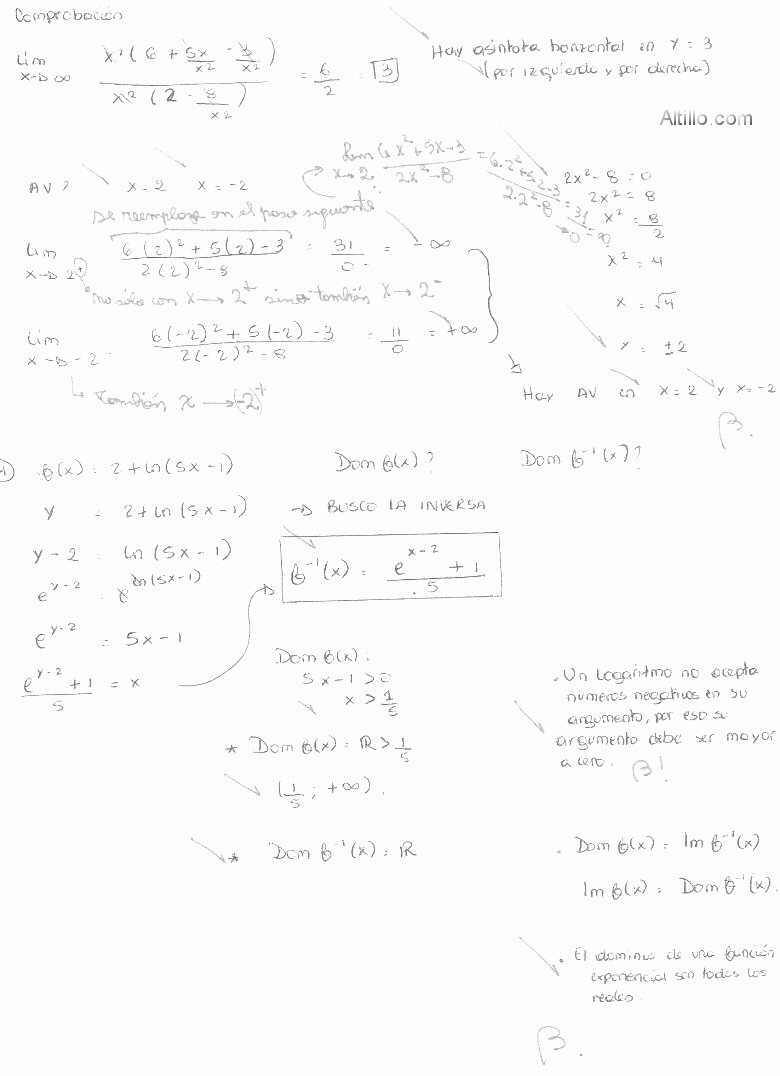 Comprobación
Lim x→∞ x²(6 + 5x/x² - 3/x²) / x²(2 - 8/x²) = 6/2 = 3
Hay asíntota horizontal en y = 3
(por izquierda y por derecha)
Altillo.com
AV? x = 2 x = -2
Lim x→2 6x² + 5x - 3 / 2x² - 8 = 6.2² + 5.2 - 3 / 2.2² - 8 = 31/0 = ∞
se reemplaza en el paso siguiente
2x² - 8 = 0
2x² = 8
x² = 8/2
x² = 4
x = √4
x = ±2
Lim x→2⁺ 6(2)² + 5(2) - 3 / 2(2)² - 8 = 31/0 = -∞
no sólo con x → 2⁺ sino también x → 2⁻
Lim x→-2 6(-2)² + 5(-2) - 3 / 2(-2)² - 8 = 11/0 = +∞
también x → (-2)⁺
Hay AV en x = 2 y x = -2
B.
f(x) = 2 + ln(5x - 1) Dom f(x)? Dom f⁻¹(x)?
y = 2 + ln(5x - 1) → BUSCO LA INVERSA
y - 2 = ln(5x - 1)
e^(y-2) = e^(ln(5x-1))
e^(y-2) = 5x - 1
e^(y-2) + 1 / 5 = x
f⁻¹(x) = e^(x-2) + 1 / 5
Dom f(x):
5x - 1 > 0
x > 1/5
* Dom f(x) = ℝ > 1/5
(1/5 ; +∞).
* Dom f⁻¹(x) = ℝ
. Un logaritmo no acepta
numeros negativos en su
argumento, por eso su
argumento debe ser mayor
a cero. B!
. Dom f(x) = Im f⁻¹(x)
Im f(x) = Dom f⁻¹(x).
. El dominio de una función
exponencial son todos los
reales.
B.